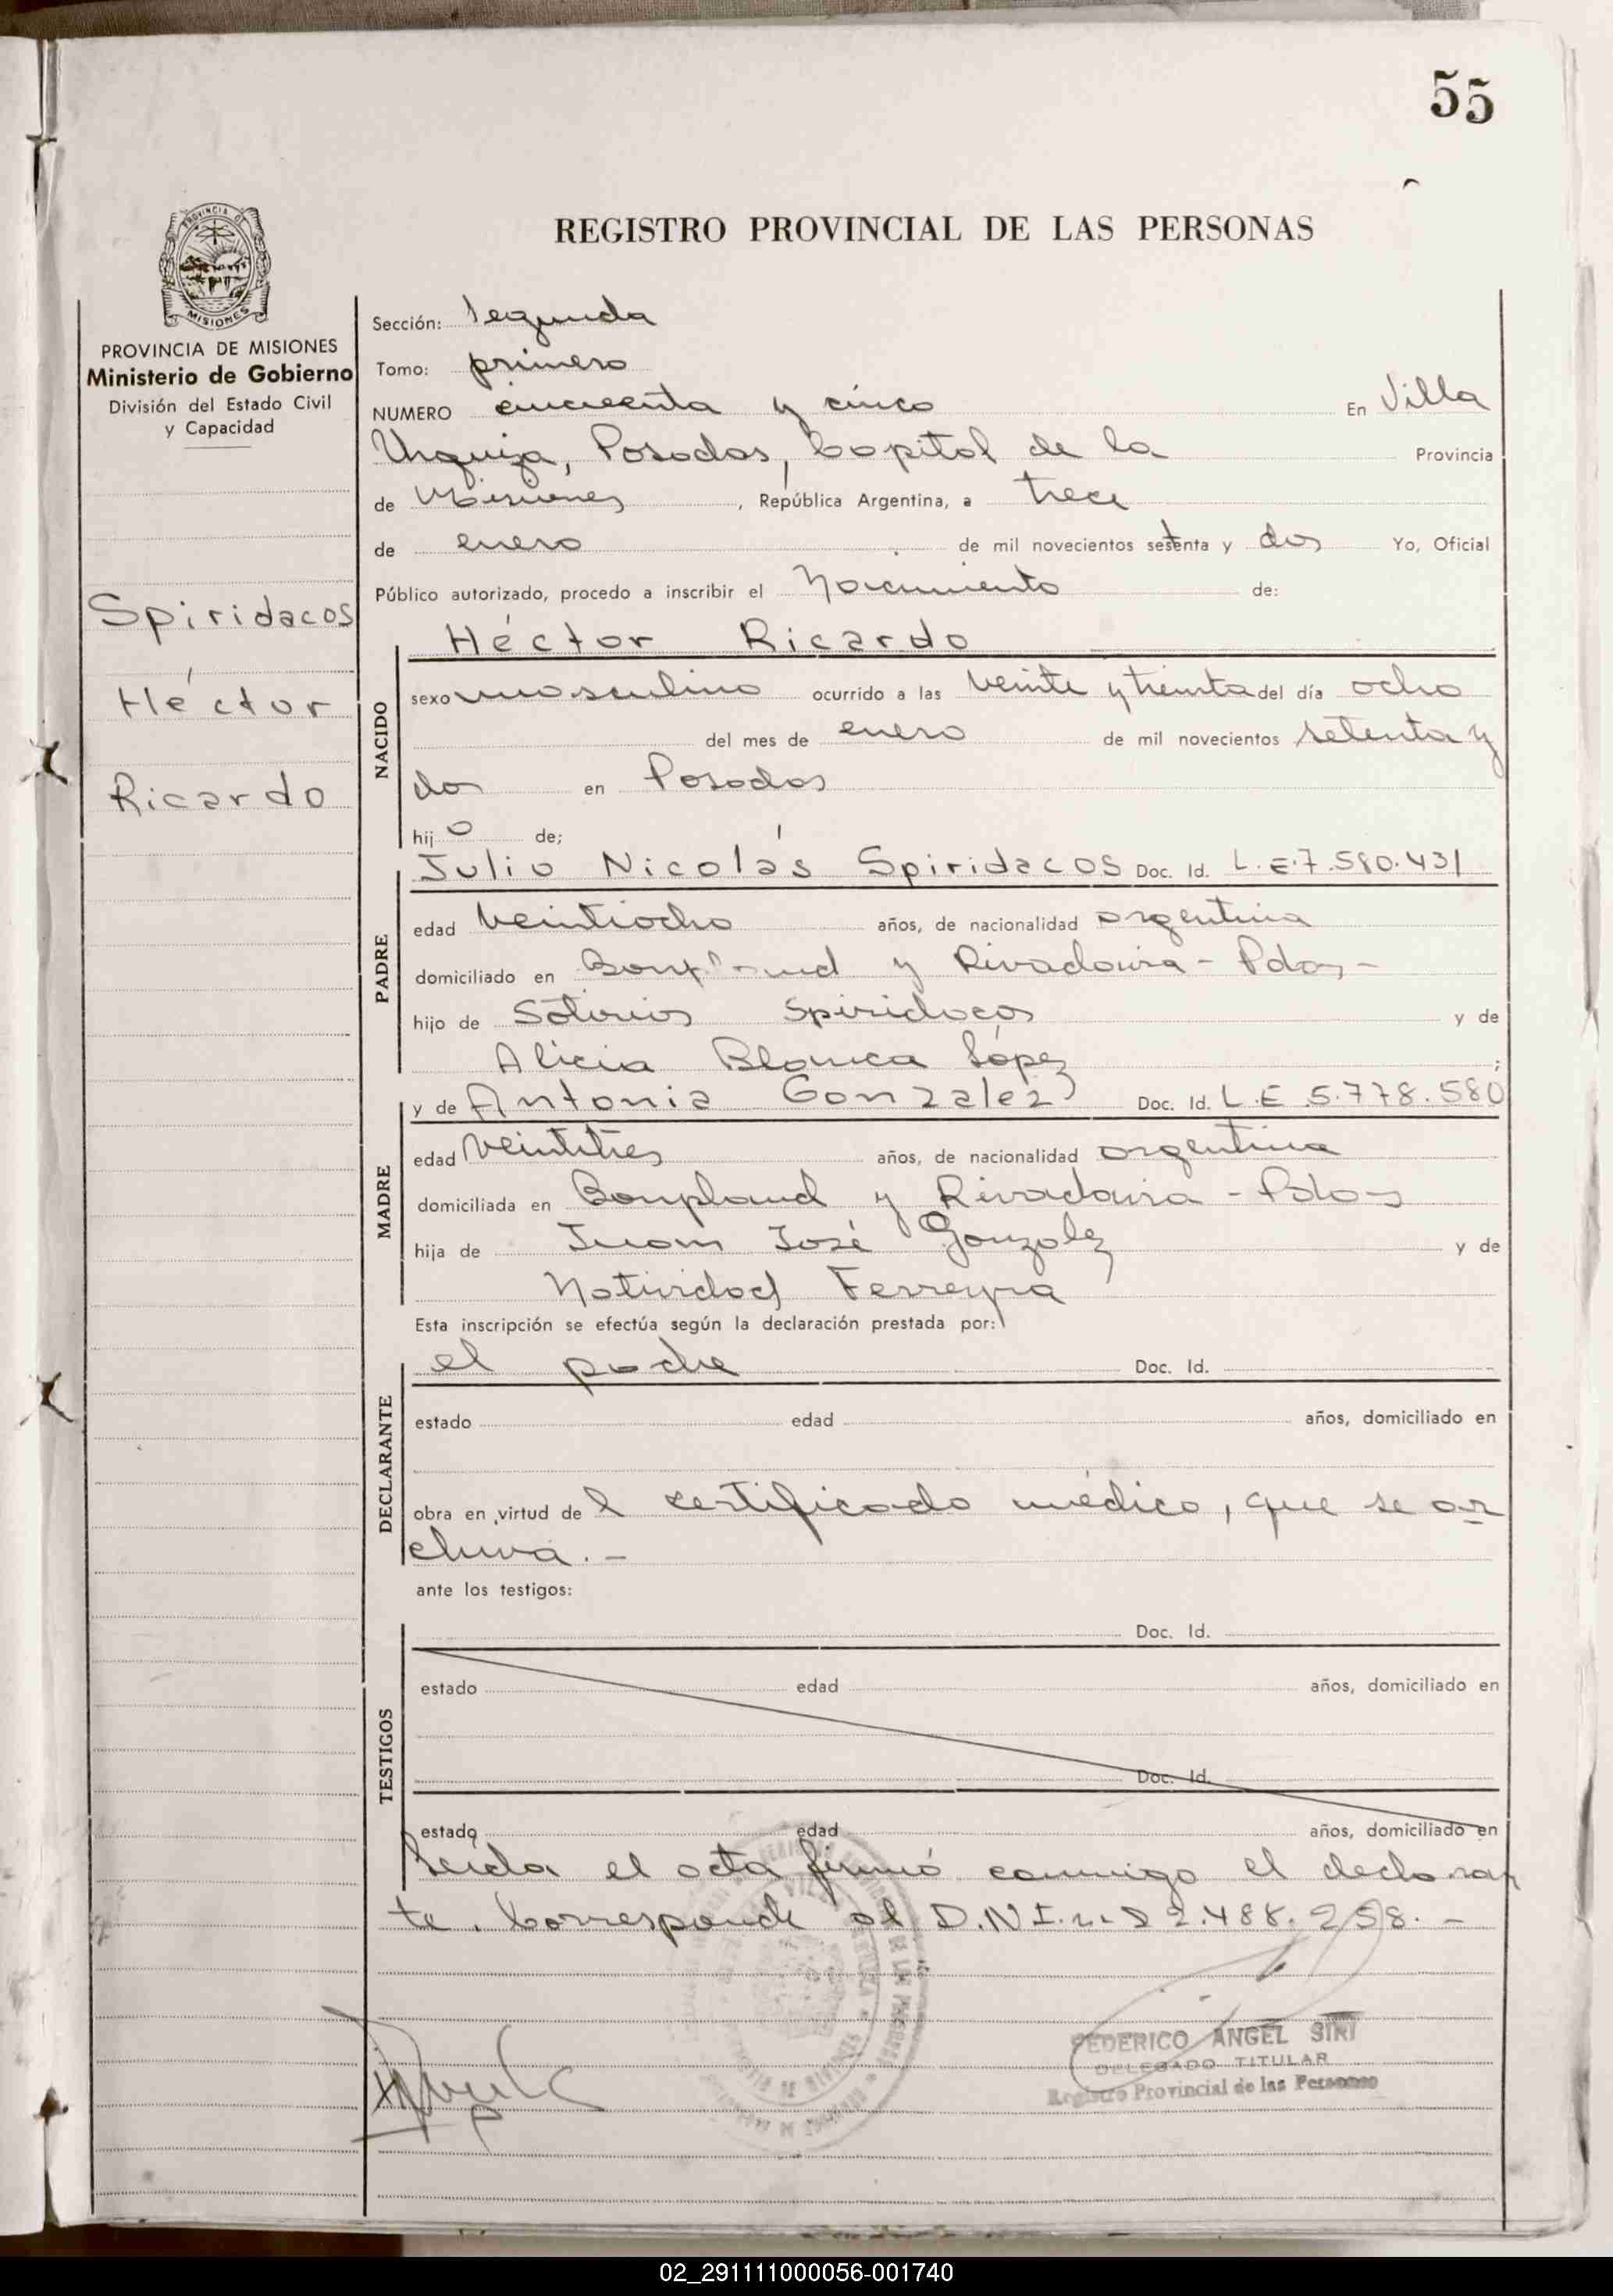 55
REGISTRO PROVINCIAL DE LAS PERSONAS
PROVINCIA DE
MISIONES
PROVINCIA DE MISIONES
Ministerio de Gobierno
División del Estado Civil
y Capacidad
Spiridacos
Héctor
Ricardo
Sección: Segunda
Tomo: primero
NUMERO cincuenta y cinco En Villa
Urquiza, Posadas, Capital de la Provincia
de Misiones, República Argentina, a trece
de enero de mil novecientos setenta y dos Yo, Oficial
Público autorizado, procedo a inscribir el Nacimiento de:
Héctor Ricardo
NACIDO
sexo masculino ocurrido a las veinte y treinta del día ocho
del mes de enero de mil novecientos setenta y
dos en Posadas
hijo de;
Julio Nicolás Spiridacos Doc. Id. L.E.7.580.431
PADRE
edad veintiocho años, de nacionalidad argentina
domiciliado en Bonpland y Rivadavia - Pdas -
hijo de Sotirios Spiridacos y de
Alicia Blanca López ;
y de Antonia Gonzalez Doc. Id. L.E 5.778.580
MADRE
edad veintitres años, de nacionalidad argentina
domiciliada en Bonpland y Rivadavia - Pdas
hija de Juan José Gonzalez y de
Natividad Ferreyra
Esta inscripción se efectúa según la declaración prestada por:
el padre Doc. Id.
DECLARANTE
estado edad años, domiciliado en
obra en virtud del certificado médico, que se ar
chiva. -
ante los testigos:
Doc. Id.
TESTIGOS
estado edad años, domiciliado en
Doc. Id.
estado edad años, domiciliado en
Leída el acta firmó conmigo el declaran
te. Corresponde al D.N.I. 22.488.258. -
FEDERICO ANGEL SIRI
DELEGADO TITULAR
Registro Provincial de las Personas
02_291111000056-001740